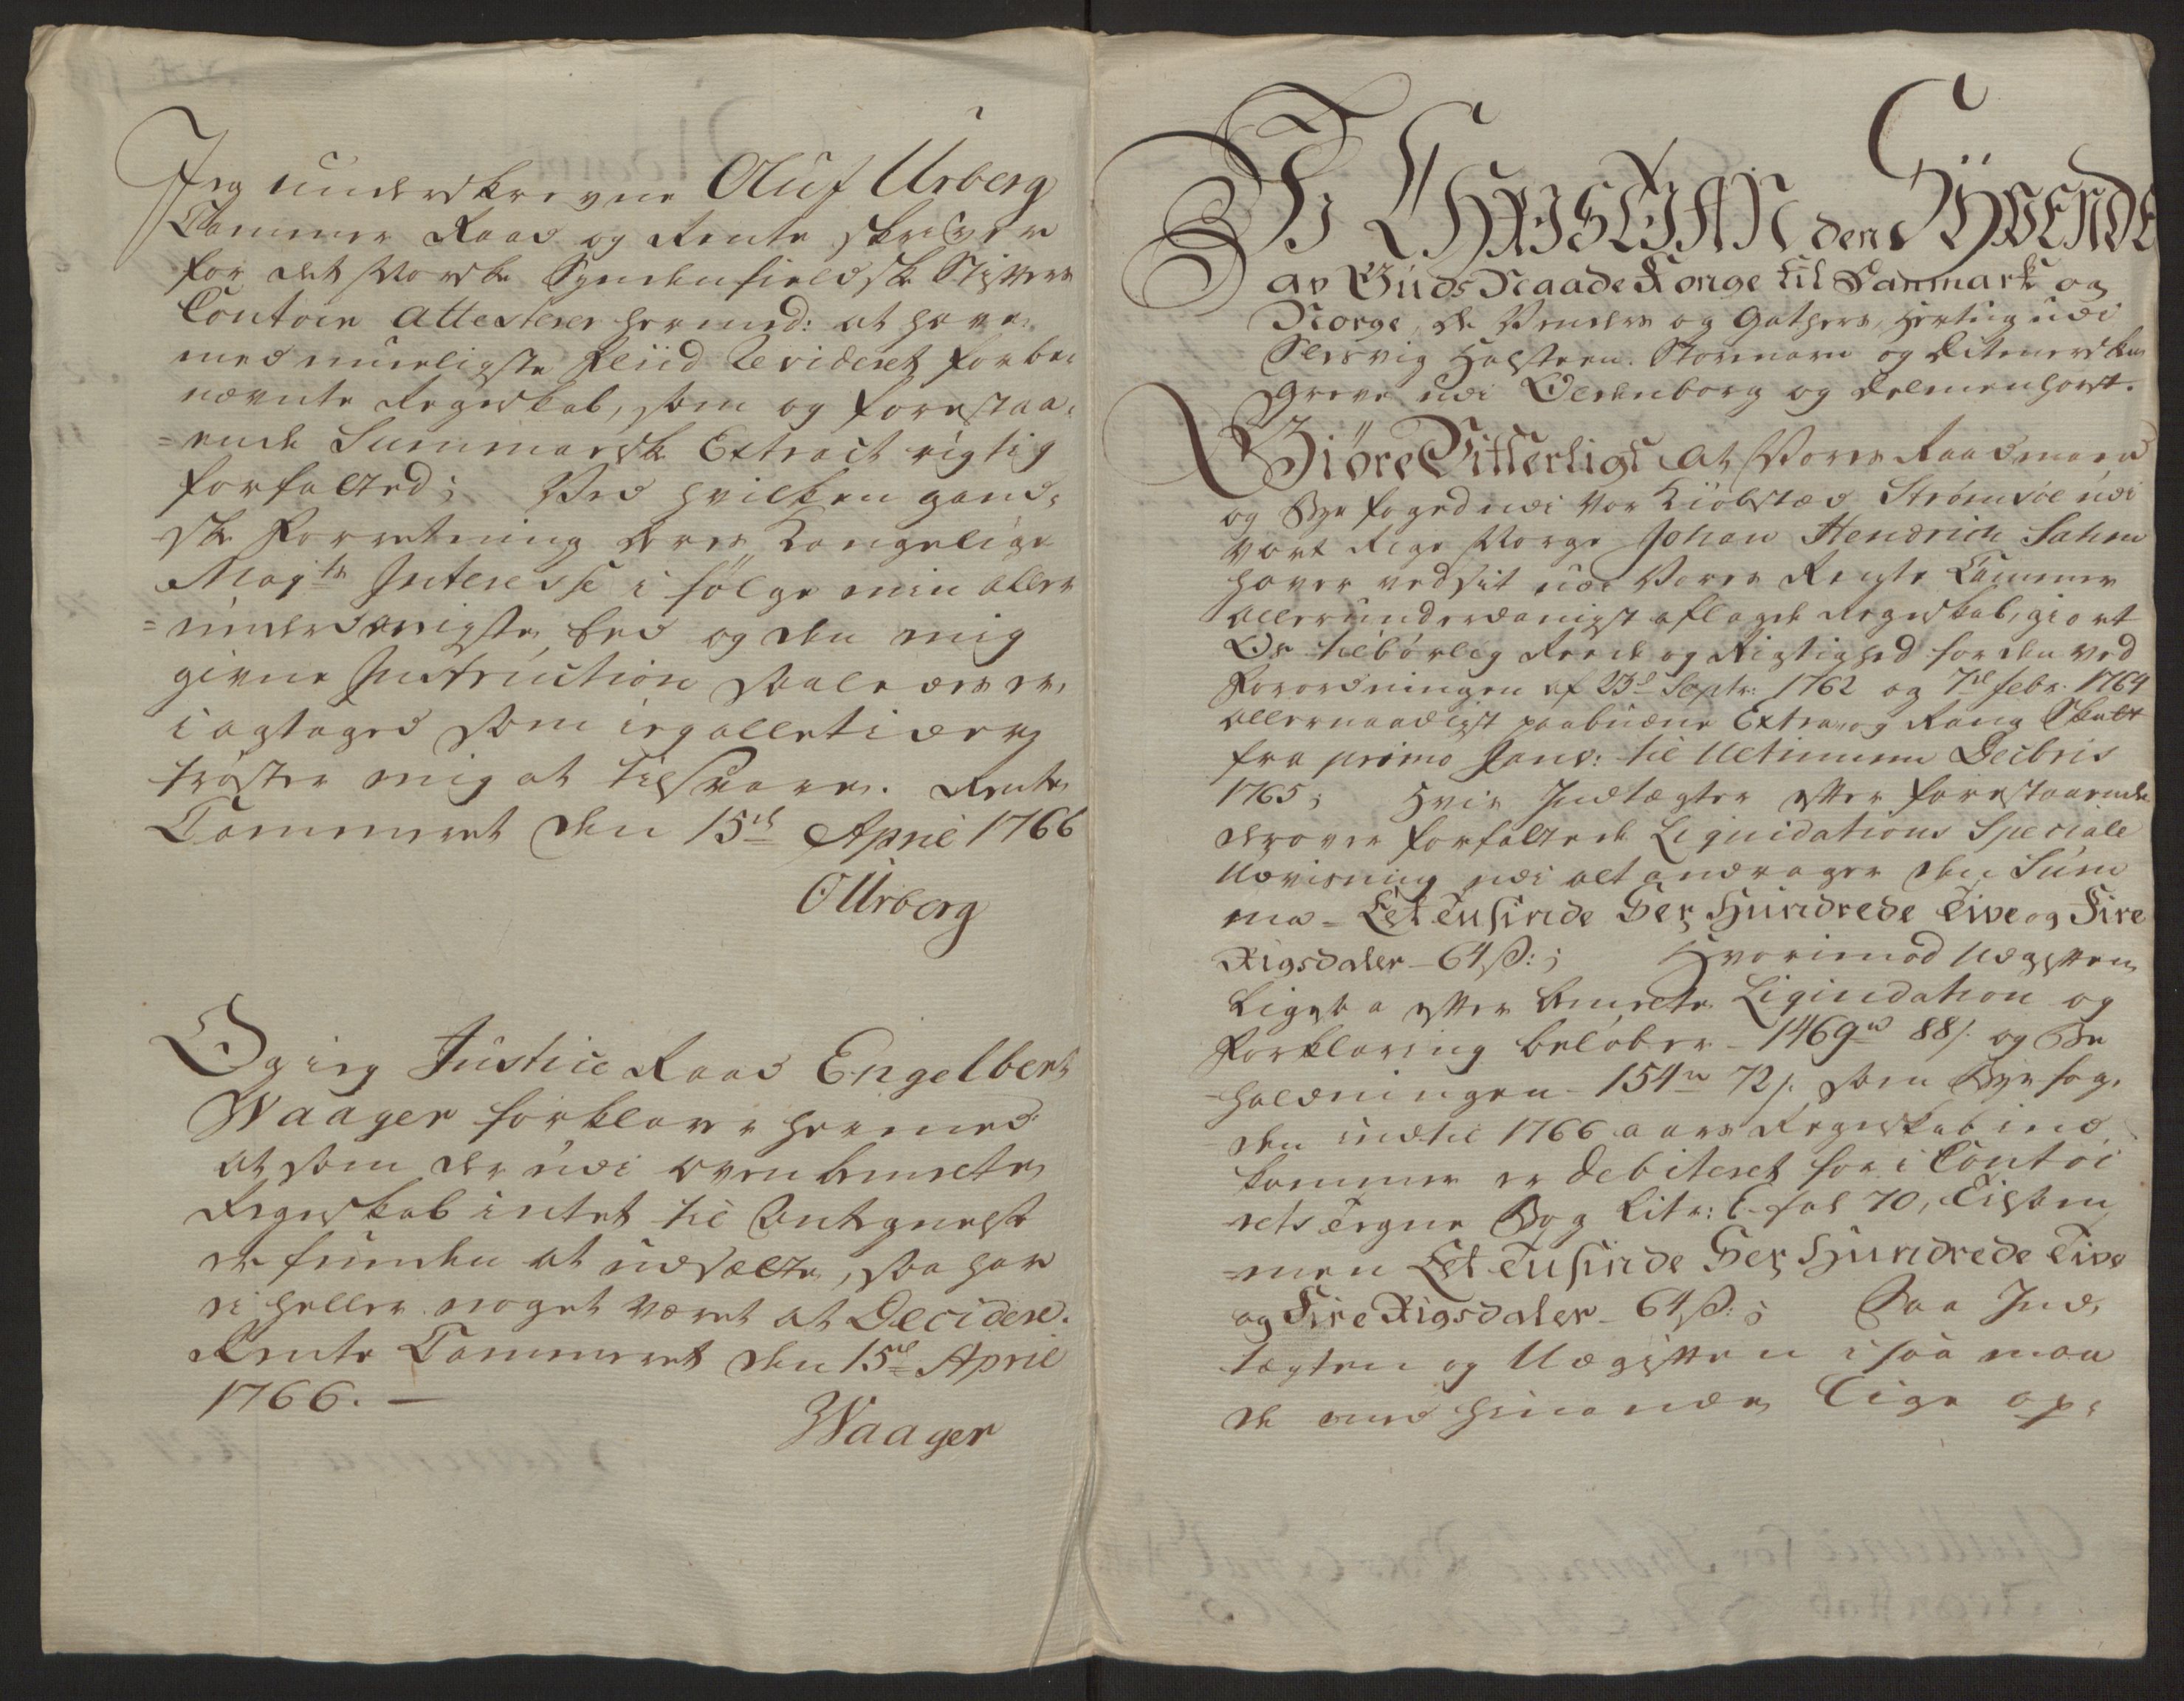 Jeg underskrevne Oluf Urberg
Cammer Raad og Rente skriver
for det Norske Syndenfieldske Stifters
Contoir Attesterer hermed: at have
med mueligste Fliid Revideret forbe-
nævnte Regnskab, som og forestaa-
=ende Summarske Extract rigtig
forfatted; Ved hvilken gand-
ske Forretning deres Kongelige
Mayts Interesse i følge min aller
=underdanigste Eed og den mig
givne Instruction skal være
iagtaged som jeg alletider
trøster mig at tilsvare. Rente
Cammeret den 15de April 1766
OUrberg
Og jeg Justice Raad Engelbert
Waager forklarer hermed
at som der udi ovenbemelte
Regnskab intet til Antegnelse
er funden at udsætte, saa har
ei heller noget været at Decidere.
Rente Cammeret den 15de April
1766. —
Waager
Vi CHRISTIAN den SYVENDE
av Guds Naade Konge til Danmark og
Norge, de Venders og Gothers, Hertug udi
Slesvig Holsteen. Stormarn og Ditmersken
Greve udi Oldenborg og Delmenhorst.
Giöre Vitterligt At Vores Raadmand
og Bye foged udi vor Kiøbstæd Strømsöe udi
vort Rige Norge Johan Hendrich Sahm
haver ved sit udi Vores Rente Cammer
allerunderdanigst aflagde Regnskab, giort
Os tilbørlig Reede og Rigtighed for den ved
Forordningen af 23d Septr: 1762 og 7de febr. 1764
allernaadigst paabudne Extra og Rang Skatt
fra primo Janv: til Ultimum Decbris
1765; Hvis Indtægter efter forestaaende
derover forfattede Liquidations Speciale
Udvisning udi alt andrager den Sum
ma - Eet Tusinde Sex Hundrede Tive og Fire
Rigsdaler - 64 ß:; Hvorimod Udgiften
ligesaa efter bemelte Liqvidation og
Forklaring beløber - 1469 rd 88 ß. og Be
=holdningen - 154 rd 72 ß. som Bye fog-
den indtil 1766 aars Regnskab ind
kommer er debiteret for i Contoi
rets Tegne Bog Litr: E fol 70, Tilsam
=men Eet Tusinde Sex Hundrede Tive
og Fire Rigsdaler - 64 ß:; Saa Ind-
tægten og Udgiften i saa maa
de med hinanden lige op-